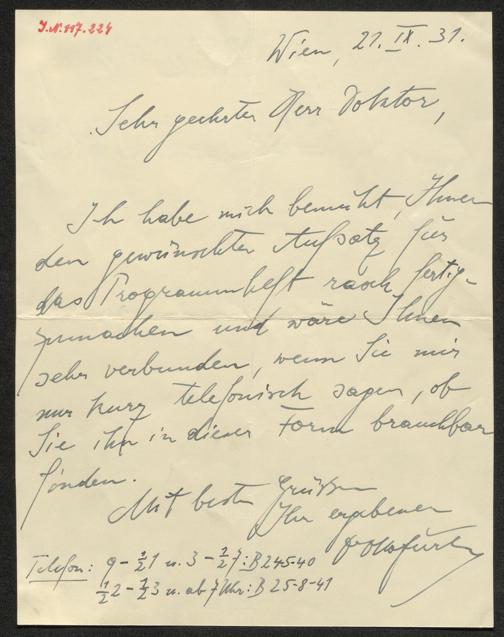 J.N. 117.224
Wien, 21. IX. 31.
Sehr geehrter Herr Doktor,
Ich habe mich bemüht, Ihnen
den gewünschten Aufsatz für
das Programmheft rasch fertig-
zumachen und wäre Ihnen
sehr verbunden, wenn Sie mir
nur kurz telefonisch sagen, ob
Sie ihn in dieser Form brauchbar
fänden.
Mit besten Grüssen
Ihr ergebener
Telefon: 9 - ½1 u. 3 - ½7: B 245-40
½2 - ½3 u. ab 7 Uhr: B 25-8-41